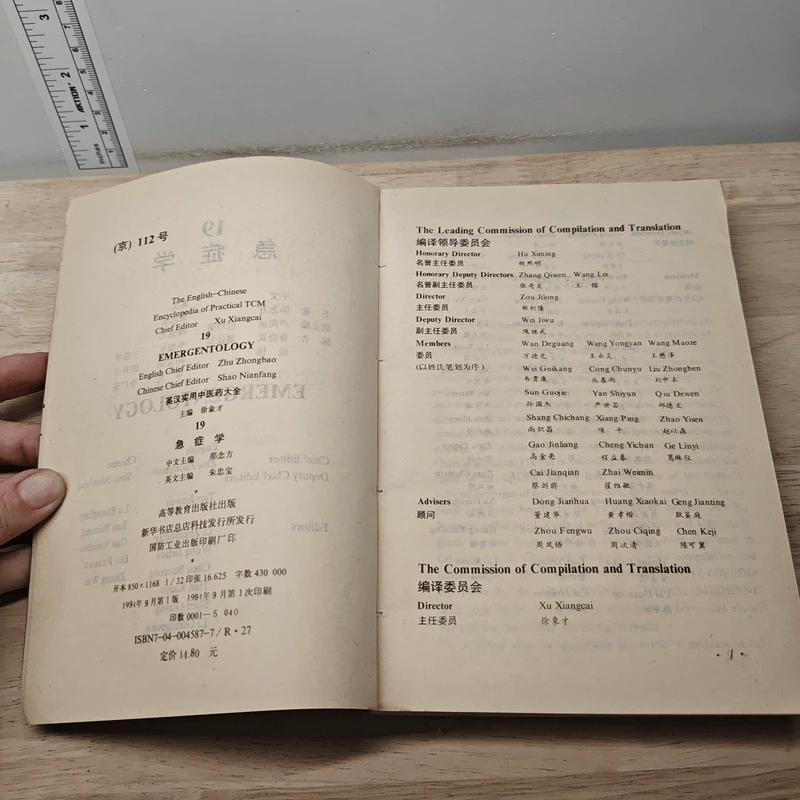 (京) 112号
The English-Chinese
Encyclopedia of Practical TCM
Chief Editor Xu Xiangcai
19
EMERGENTOLOGY
English Chief Editor Zhu Zhongbao
Chinese Chief Editor Shao Nianfang
英汉实用中医药大全
主编 徐象才
19
急症学
中文主编 邵念方
英文主编 朱忠宝
高等教育出版社出版
新华书店总店科技发行所发行
国防工业出版社印刷厂印
开本850×1168 1/32 印张16.625 字数430 000
1994年9月第1版 1994年9月第1次印刷
印数0001-5 040
ISBN7-04-004587-7/R·27
定价14.80 元
The Leading Commission of Compilation and Translation
编译领导委员会
Honorary Director Hu Ximing
名誉主任委员 胡熙明
Honorary Deputy Directors Zhang Qiwen Wang Lei
名誉副主任委员 张奇文 王镭
Director Zou Jilong
主任委员 邹积隆
Deputy Director Wei Jiwu
副主任委员 隗继武
Members Wan Deguang Wang Yongyan Wang Maoze
委员 万德光 王永炎 王懋泽
(以姓氏笔划为序) Wei Guikang Cong Chunyu Liu Zhongben
韦贵康 丛春雨 刘中本
Sun Guojie Yan Shiyun Qiu Dewen
孙国杰 严世芸 邱德文
Shang Chichang Xiang Ping Zhao Yisen
尚炽昌 项平 赵以森
Gao Jinliang Cheng Yichun Ge Linyi
高金亮 程益春 葛琳仪
Cai Jianqian Zhai Weimin
蔡剑前 翟维敏
Advisers Dong Jianhua Huang Xiaokai Geng Jianting
顾问 董建华 黄孝楷 耿鉴庭
Zhou Fengwu Zhou Ciqing Chen Keji
周凤梧 周次清 陈可冀
The Commission of Compilation and Translation
编译委员会
Director Xu Xiangcai
主任委员 徐象才
·1·